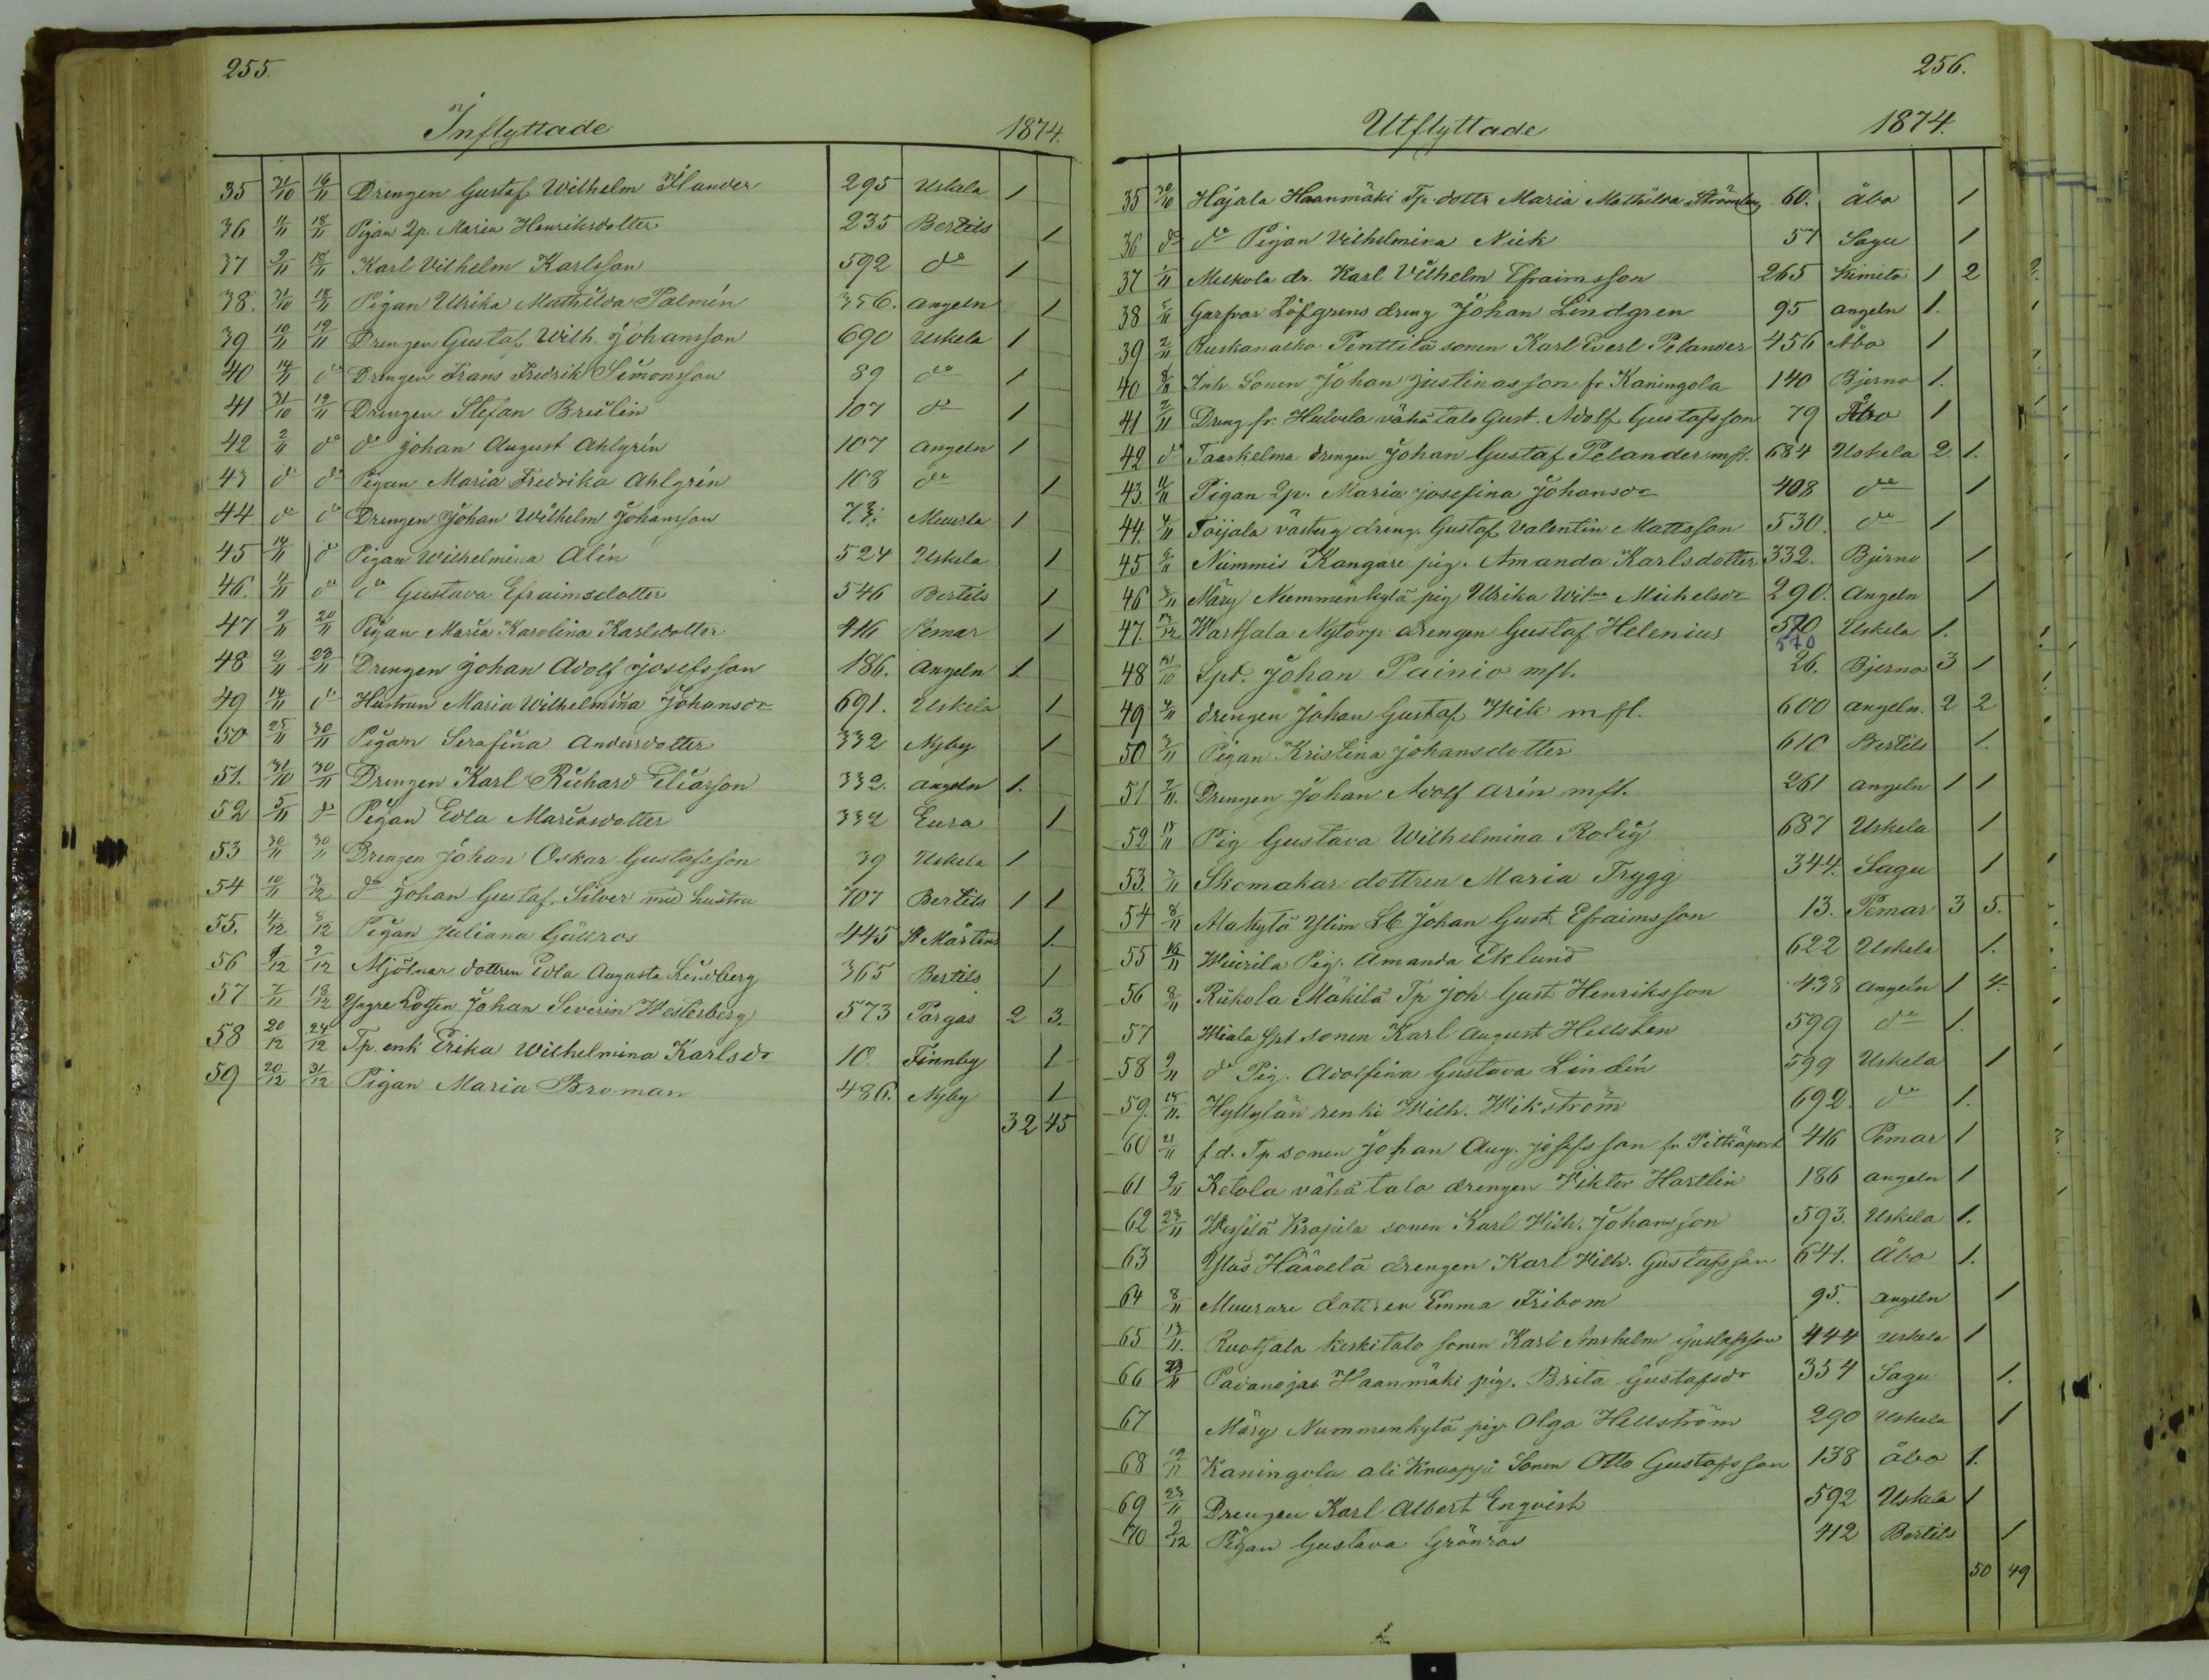 255.
Inflyttade 1874.
35 31/10 16/11 Drengen Gustaf Wilhelm Ilander 295 Uskela 1
36 11/11 18/11 Pigan Qp. Maria Henriksdotter 235 Bertils 1
37 2/11 18/11 Karl Vilhelm Karlsson 592 do 1
38. 31/10 18/11 Pigan Ulrika Mathilda Palmén 356. Angeln 1
39 10/11 19/11 Drengen Gustaf Wilh. Johansson 690 Uskela 1
40 14/11 do Drengen Frans Fredrik Simonsson 89 do 1
41 31/10 19/11 Drengen Stefan Brulin 107 do 1
42 2/11 do do Johan August Ahlgrén 107 Angeln 1
43 do do Pigan Maria Fredrika Ahlgrén 108 do 1
44 do do Drengen Johan Wilhelm Johansson 73. Muurla 1
45 14/11 do Pigan Wilhelmina Alén 524 Uskela 1
46. 4/11 do do Gustava Efraimsdotter 546 Bertils 1
47 2/11 20/11 Pigan Maria Karolina Karlsdotter 416 Pemar 1
48 2/11 23/11 Drengen Johan Adolf Josefsson 186. Angeln 1
49 14/11 do Hustrun Maria Wilhelmina Johansdr 691. Uskela 1
50 25/11 30/11 Pigan Serafina Andersdotter 332 Nyby 1
51. 31/10 30/11 Drengen Karl Richard Eliasson 332. Angeln 1.
52 5/11 do Pigan Edla Mariasdotter 332 Eura 1
53 30/11 30/11 Drengen Johan Oskar Gustafsson 39 Uskela 1
54 10/11 3/12 do Johan Gustaf Silver med hustru 707 Bertils 1 1
55. 4/12 8/12 Pigan Juliana Gällros 445 St Mårtens 1.
56 9/12 9/12 Mjölnar dottren Edla Augusta Lindberg 365 Bertils 1
57 7/11 18/12 Yngre Lotsen Johan Severin Westerberg 573 Pargas 2 3.
58 20/12 24/12 Tp. enk Erika Wilhelmina Karlsdr 10. Finnby 1
59 20/12 31/12 Pigan Maria Broman 486. Nyby 1
32 45
256.
Utflyttade 1874.
35 30/10 Hajala Haanmäki Tp. dottr Maria Mathilda Strömberg 60. Åbo 1
36 do do Pigan Vilhelmina Niek 57 Sagu 1
37 1/11 Melkola dr. Karl Vilhelm Efraimsson 265 Kimito 1 2
38 5/11 Garfvar Löfgrens dreng Johan Lindgren 95 Angeln 1.
39 2/11 Ruskanalho Penttilä sonen Karl Everl Pelander 456 Åbo 1
40 8/11 Inh. Sonen Johan Justinasson fr Kaningola 140 Bjerno 1.
41 2/11 Dreng fr. Hulvela vähätalo Gust. Adolf Gustafsson 79 Åbo 1
42 do Taarkelma drengen Johan Gustaf Pelander mfl. 684 Uskela 2. 1.
43 11/11 Pigan Qp. Maria Josefina Johansdr 408 do 1
44. 4/11 Toijala västerg dreng. Gustaf Valentin Mattsson 530. do 1
45 6/11 Nummis Kangare pig. Amanda Karlsdotter 332. Bjerno 1
46 3/11 Märy Nummenkylä pig Ulrika Wilna Michelsdr 290. Angeln 1
47. 12/12 Wartsala Nytorp drengen Gustaf Helenius 520 Uskela 1.
570
48 31/10 Spt. Johan Painio mfl. 26. Bjerno 3 1
49 4/11 drengen Johan Gustaf Wik mfl. 600 Angeln. 2 2
50 3/11 Pigan Kristina Johansdotter 610 Bertils 1.
51 7/11. Drengen Johan Adolf Arén mfl. 261 Angeln 1 1
52 15/11 Pig Gustava Wilhelmina Rolig 687 Uskela 1
53. 7/11 Skomakar dottren Maria Trygg 344. Sagu 1
54 8/11 Alakylä Ylim Lb Johan Gust. Efraimsson 13. Pemar 3 5.
55 16/11 Wiurila Pig. Amanda Eklund 622 Uskela 1.
56 9/11 Riikola Mäkilä Tp Joh. Gust. Henriksson 438 Angeln 1 4.
57 Wiala Spt sonen Karl August Hellsten 599 do 1.
58 9/11 do Pig. Adolfina Gustava Lindén 599 Uskela 1
59. 15/11. Hyllylän renki Wilh. Wikström 692. do 1.
60 21/11 f.d. Tp sonen Johan Aug. Josefsson fr Pitkäport 416 Pemar 1
61 9/11 Ketola vähä talo drengen Viktor Hartlin 186 Angeln 1
62 23/11 Krapila sonen Karl Wilh. Johansson 593. Uskela 1.
63 Häävelä drengen Karl Wilh. Gustafsson 641. Åbo 1.
64 8/11 Muurare dottren Emma Fribom 95. Angeln 1
65 13/11. Ruotsala keskitalo sonen Karl Anshelm Gustafsson 444 Uskela 1
66 23/11 Padanojas Haanmäki pig. Brita Gustafsdr 354 Sagu 1.
67 Märy Nummenkylä pig Olga Hellström 290 Uskela 1
68 19/11 Kaningola ali Knaapi Sonen Otto Gustafsson 138 Åbo 1.
69 23/11 Drengen Karl Albert Enqvist 592 Uskela 1
70 9/12 Pigan Gustava Grönros 412 Bertils 1
50 49